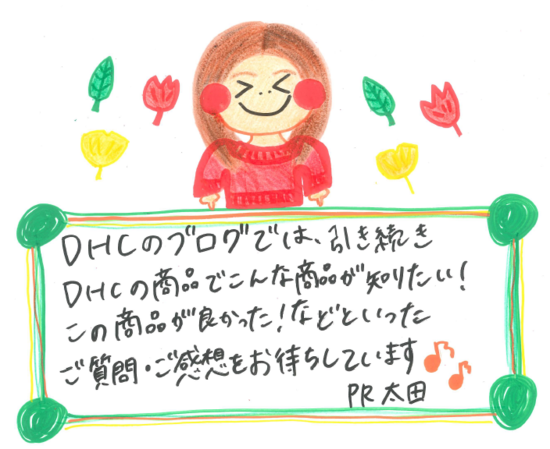 DHCのブログでは、引き続き
DHCの商品でこんな商品が知りたい！
この商品が良かった！などといった
ご質問・ご感想をお待ちしています
PR太田